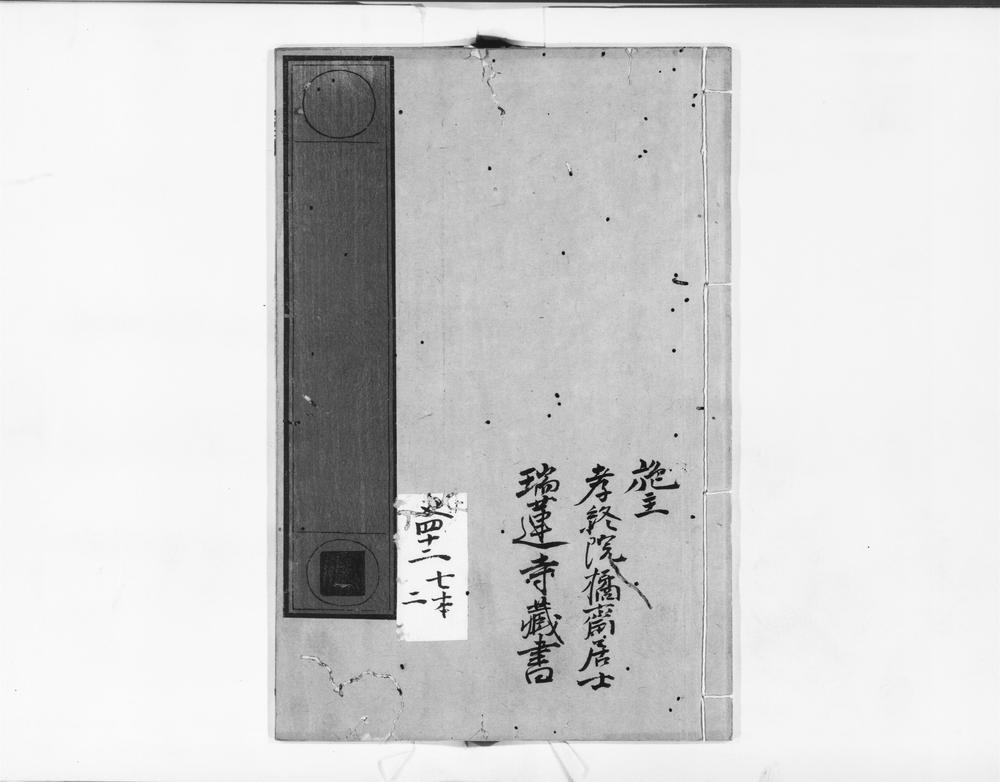 施主
孝終院橘齋居士
瑞蓮寺藏書
四十二
七本
二